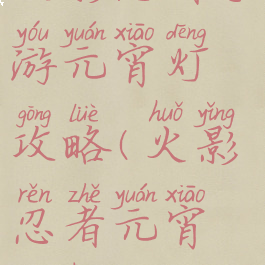 yóu yuán xiāo dēng
游元宵灯
gōng lüè huǒ yǐng
攻略(火影
rěn zhě yuán xiāo
忍者元宵